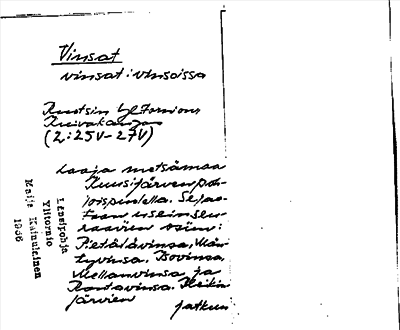 Vinsat
vinsat : vinsoissa
Ruotsin Ylitornion
Kuivakangas
(2:25V-27V)
Laaja metsämaa
Kuusijärven poh-
joispuolella. Se jae-
taan useisiin seu-
raaviin osiin:
Pietälävinsa, Män-
tyvinsa, Bovinsa,
Mellanvinsa ja
Rantavinsa. Heikin
järvien
jatkuu
Länsipohja
Ylitornio
Maija Kainulainen
1966